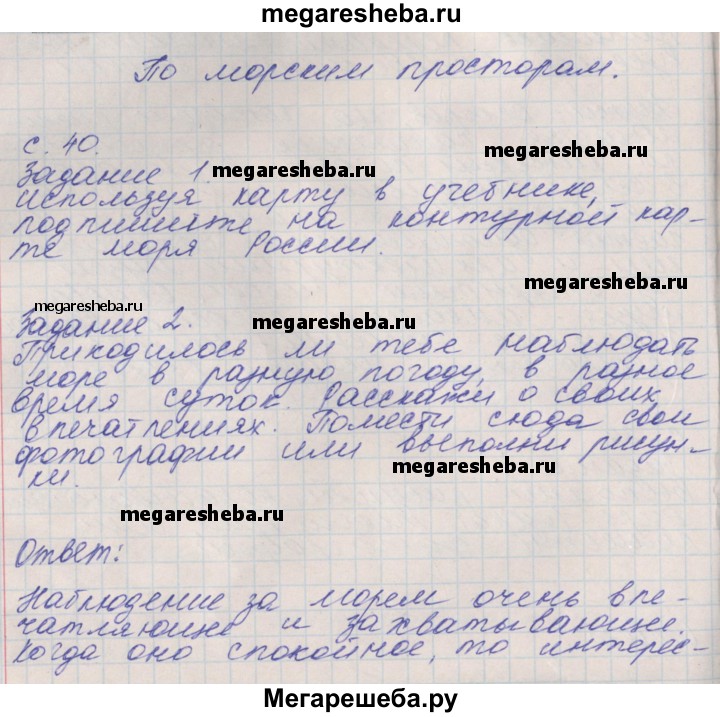 megaresheba.ru
По морским просторам.
с. 40.
megaresheba.ru
Задание 1.
megaresheba.ru
используя карту в учебнике,
подпишите на контурной кар-
те моря России.
megaresheba.ru
megaresheba.ru
Задание 2.
megaresheba.ru
Приходилось ли тебе наблюдать
море в разную погоду, в разное
время суток. Расскажи о своих
впечатлениях. Помести сюда свои
фотографии или выполни рисун-
ки.
megaresheba.ru
megaresheba.ru
Ответ:
Наблюдение за морем очень впе-
чатляюще и захватывающе.
Когда оно спокойное, то интерес-
Мегарешеба.ру